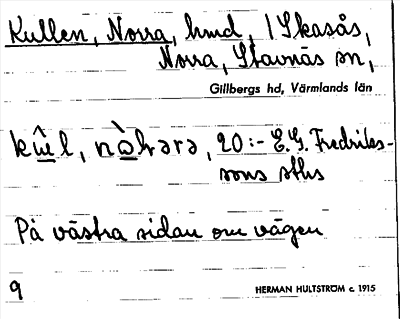 Kullen, Norra, hmd, 1 Skasås,
Norra, Stavnäs sn,
Gillbergs hd, Värmlands län
20:- E.G. Fredriks-
sons sths
På västra sidan om vägen
9 HERMAN HULTSTRÖM c. 1915